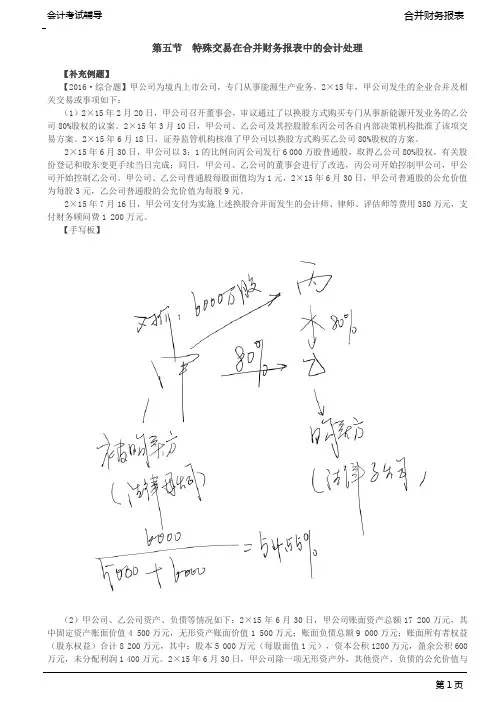 会计考试辅导
合并财务报表
第五节 特殊交易在合并财务报表中的会计处理
【补充例题】
【2016·综合题】甲公司为境内上市公司，专门从事能源生产业务。2×15年，甲公司发生的企业合并及相
关交易或事项如下：
（1）2×15年2月20日，甲公司召开董事会，审议通过了以换股方式购买专门从事新能源开发业务的乙公
司80%股权的议案。2×15年3月10日，甲公司、乙公司及其控股股东丙公司各自内部决策机构批准了该项交
易方案。2×15年6月18日，证券监管机构核准了甲公司以换股方式购买乙公司80%股权的方案。
2×15年6月30日，甲公司以3：1的比例向丙公司发行6 000万股普通股，取得乙公司80%股权，有关股
份登记和股东变更手续当日完成；同日，甲公司、乙公司的董事会进行了改选，丙公司开始控制甲公司，甲公
司开始控制乙公司。甲公司、乙公司普通股每股面值均为1元，2×15年6月30日，甲公司普通股的公允价值
为每股3元，乙公司普通股的公允价值为每股9元。
2×15年7月16日，甲公司支付为实施上述换股合并而发生的会计师、律师、评估师等费用350万元，支
付财务顾问费1 200万元。
【手写板】
定增：6000万股 丙
80%
甲 80% 乙
被购买方
（法律母公司）
购买方
（法律子公司）
6000
5000+6000
=54.55%
（2）甲公司、乙公司资产、负债等情况如下：2×15年6月30日，甲公司账面资产总额17 200万元，其
中固定资产账面价值4 500万元，无形资产账面价值1 500万元；账面负债总额9 000万元；账面所有者权益
（股东权益）合计8 200万元，其中：股本5 000万元（每股面值1元），资本公积1200万元，盈余公积600
万元，未分配利润1 400万元。2×15年6月30日，甲公司除一项无形资产外，其他资产、负债的公允价值与
第1页